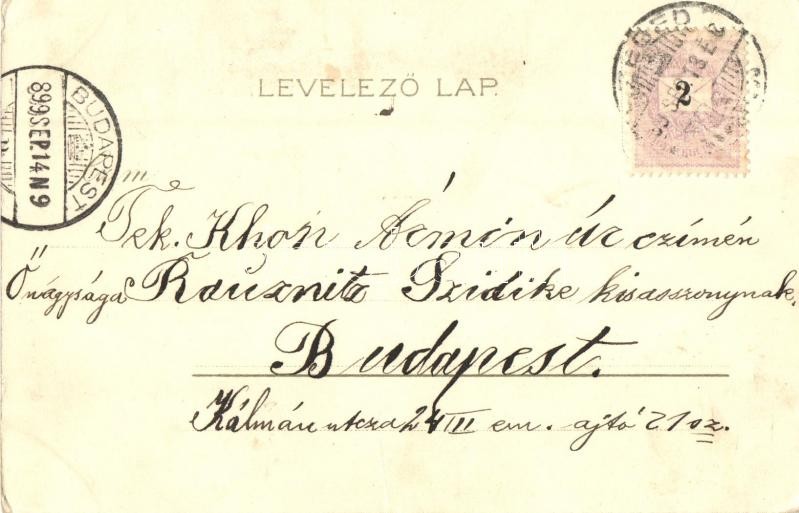 LEVELEZŐ LAP
2
BUDAPEST
899 SEP. 14 N 9
Tek. Khon Ármin úr czímén
Őnagysága Rauznitz Szidike kisasszonynak,
Budapest.
Kálmán utcza 24 III em. ajtó 21 sz.